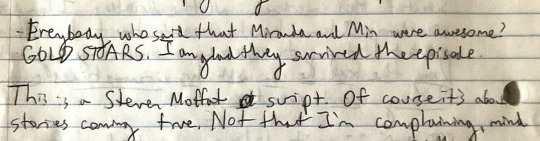 - Ereybody who said that Miranda and Min were awesome?
GOLD STARS. I am glad they survived the episode.
This is a Steven Moffat script. Of course it's abou
stories coming true. Not that I'm complaining, mind